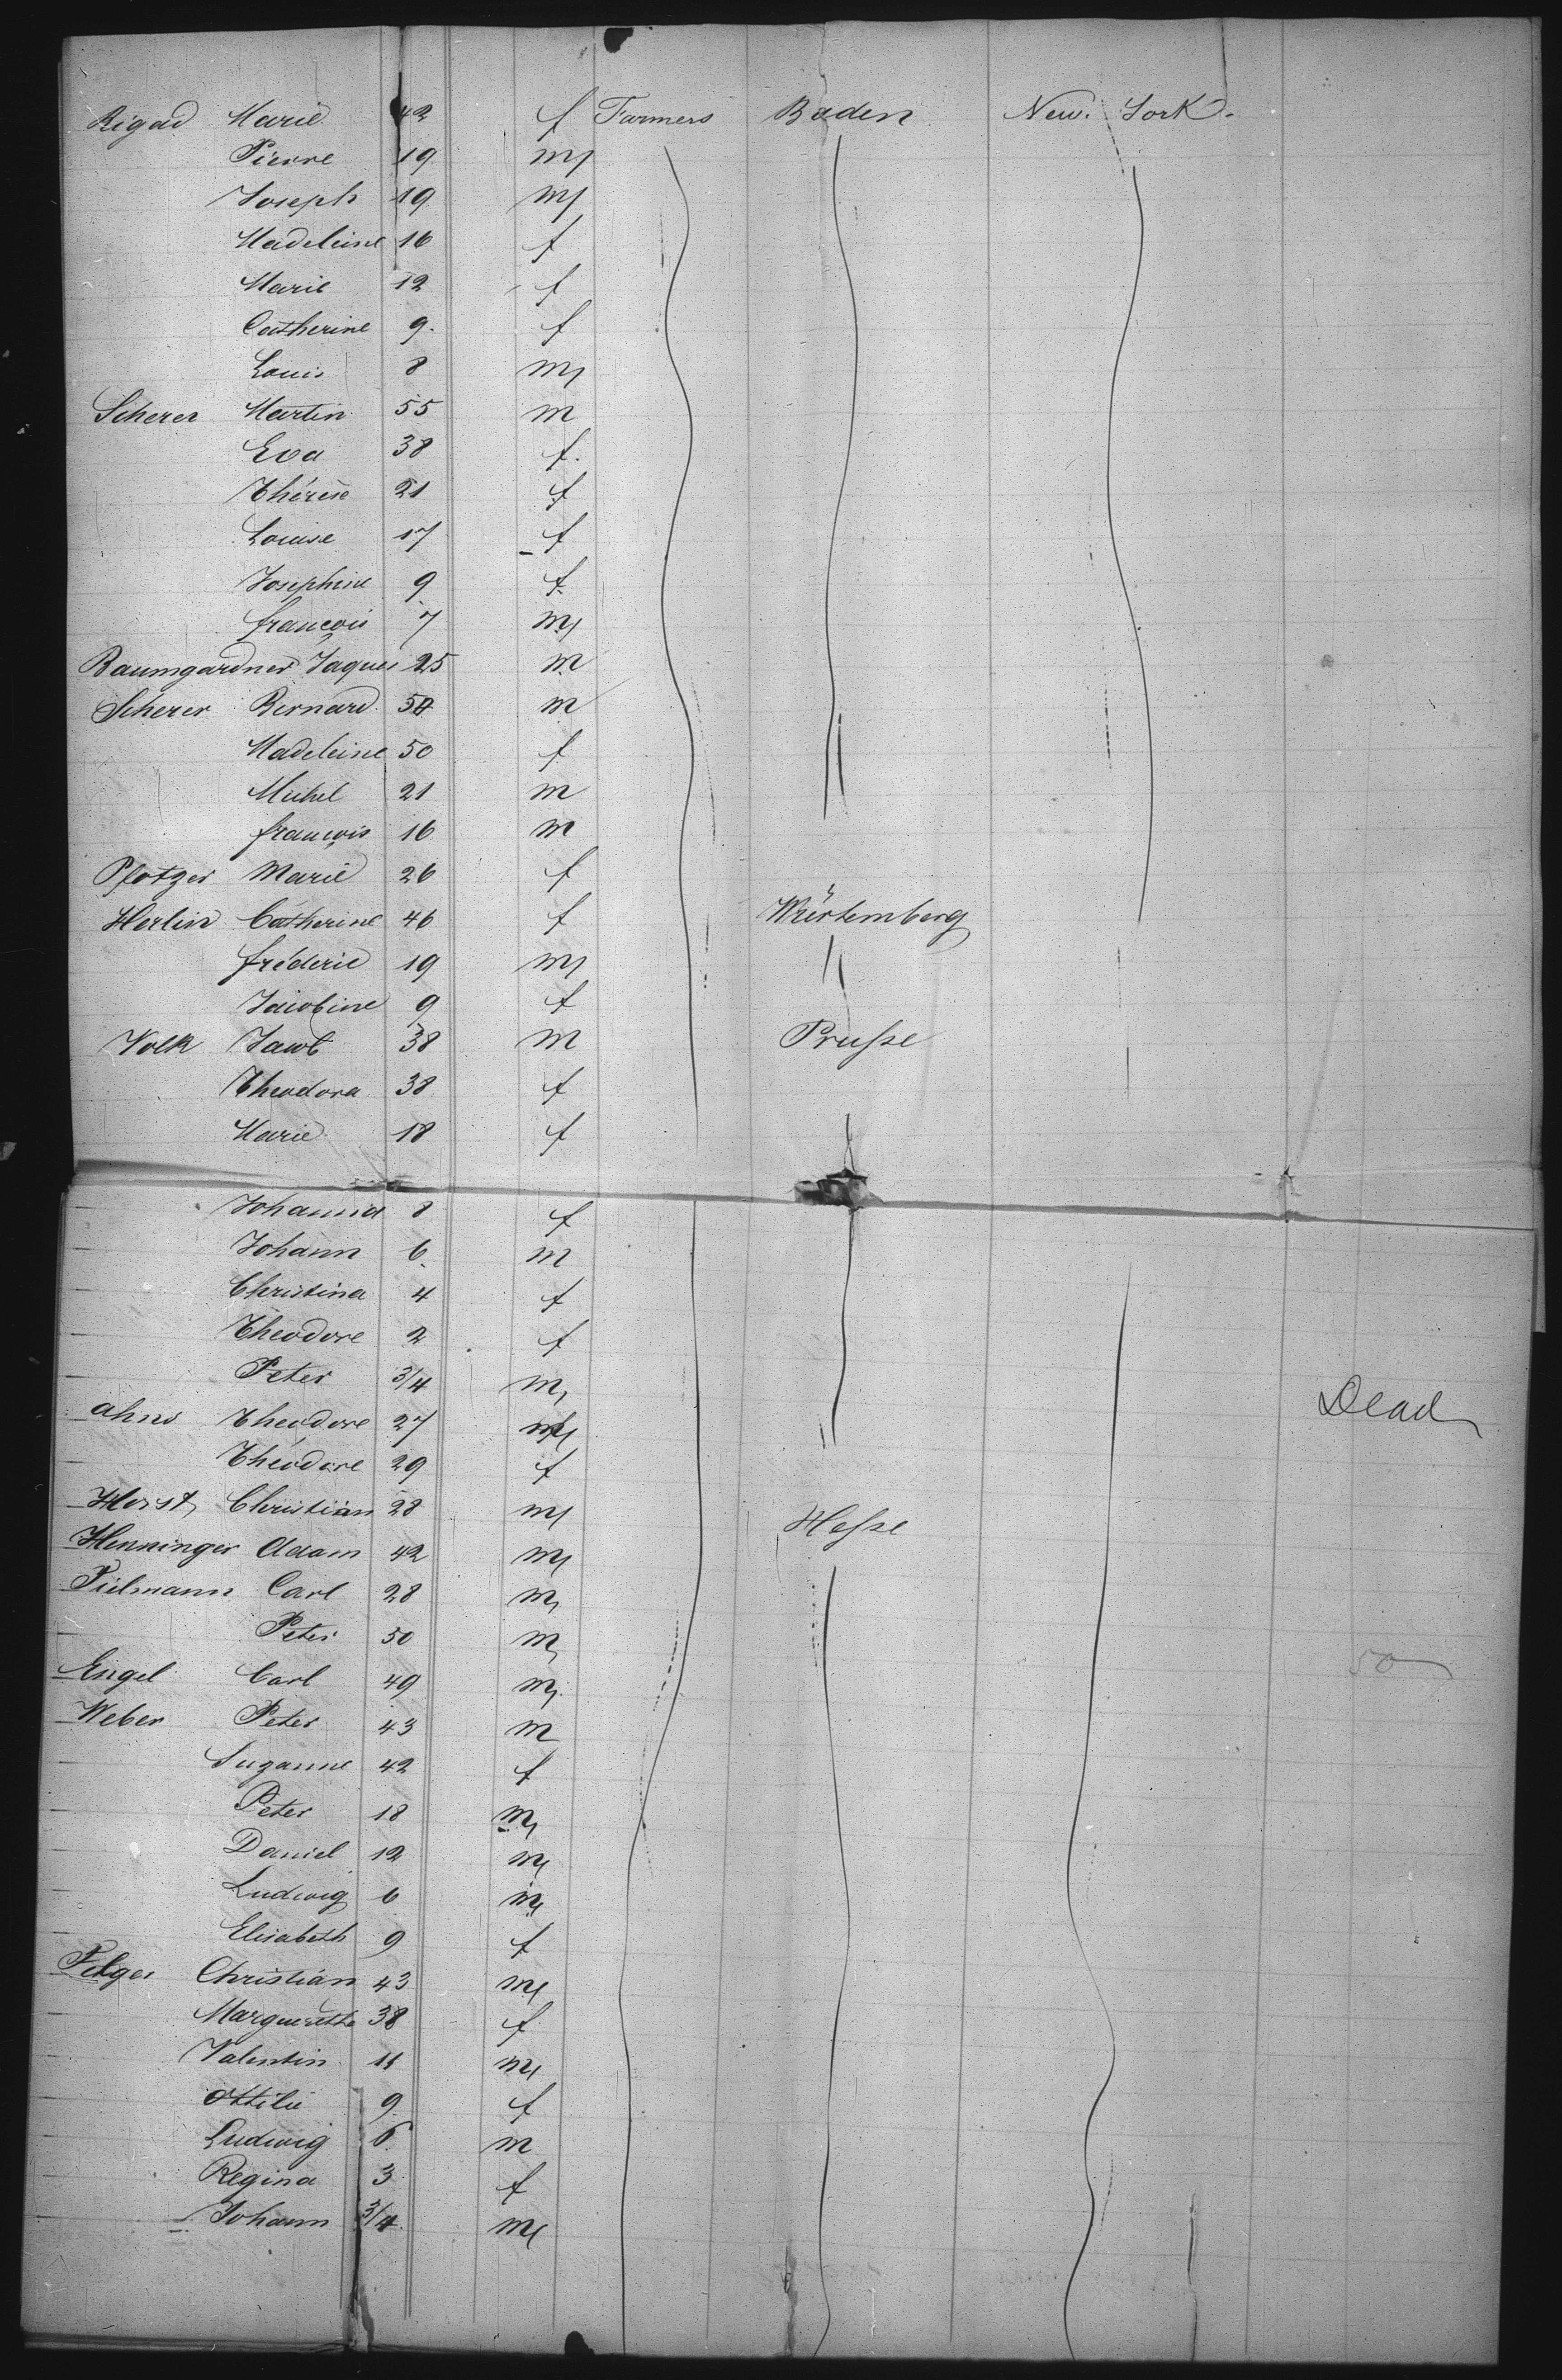 Rigad Marie 42 f Farmers Baden New York.
Pierre 19 m
Joseph 19 m
Madeleine 16 f
Marie 12 f
Catherine 9. f
Louis 8 m
Scherer Martin 55 m
Eva 38 f.
Thérèse 21 f
Louise 17 f
Josephine 9 f
françois 7 m
Baumgardner Jaques 25 m
Scherer Bernard 54 m
Madeleine 50 f
Michel 21 m
françois 16 m
Pfotzer Marie 26 f
Herlin Catherine 46 f Würtemberg
fréderic 19 m "
Jacobine 9 f
Volk Jacob 38 m Prusse
Theodora 38 f
Marie 18 f
Johanna 8 f
Johann 6. m
Christina 4 f
Theodore 2 f
Peter 3/4 m Dead
Ahns Theodore 27 m
Théodore 29 f
Horst Christian 28 m Hesse
Henninger Adam 42 m
Pielmann Carl 28 m
Peter 50 m
Engel Carl 49 m 50
Weber Peter 43 m
Suzanne 42 f
Peter 18 m
Daniel 12 m
Ludwig 6 m
Elisabeth 9 f
Christian 43 m
Marguerethe 38 f
Valentin 11 m
Ottilie 9 f
Ludwig 6 m
Regina 3 f
Johann 3/4 m